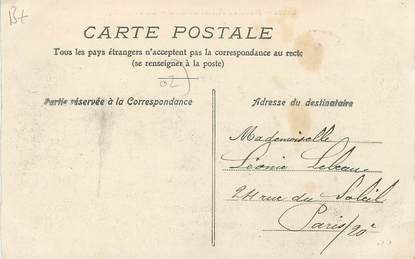 B+
CARTE POSTALE
Tous les pays étrangers n'acceptent pas la correspondance au recto
(se renseigner à la poste)
02
Partie réservée à la Correspondance
Adresse du destinataire
Mademoiselle
Léonie Lebeau
24 rue du Soleil
Paris/20e